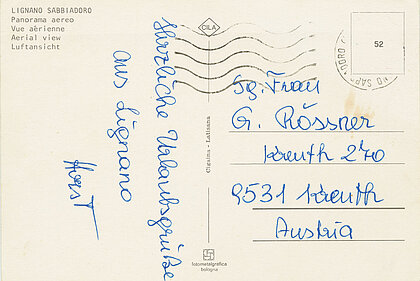 LIGNANO SABBIADORO
Panorama aereo
Vue aérienne
Aerial view
Luftansicht
CILA
52
Herzliche Urlaubsgrüße
aus Lignano
Horst
Cigaina - Latisana
Sg. Frau
G. Rössner
Kreuth 270
9531 Kreuth
Austria
fotometalgrafica
bologna